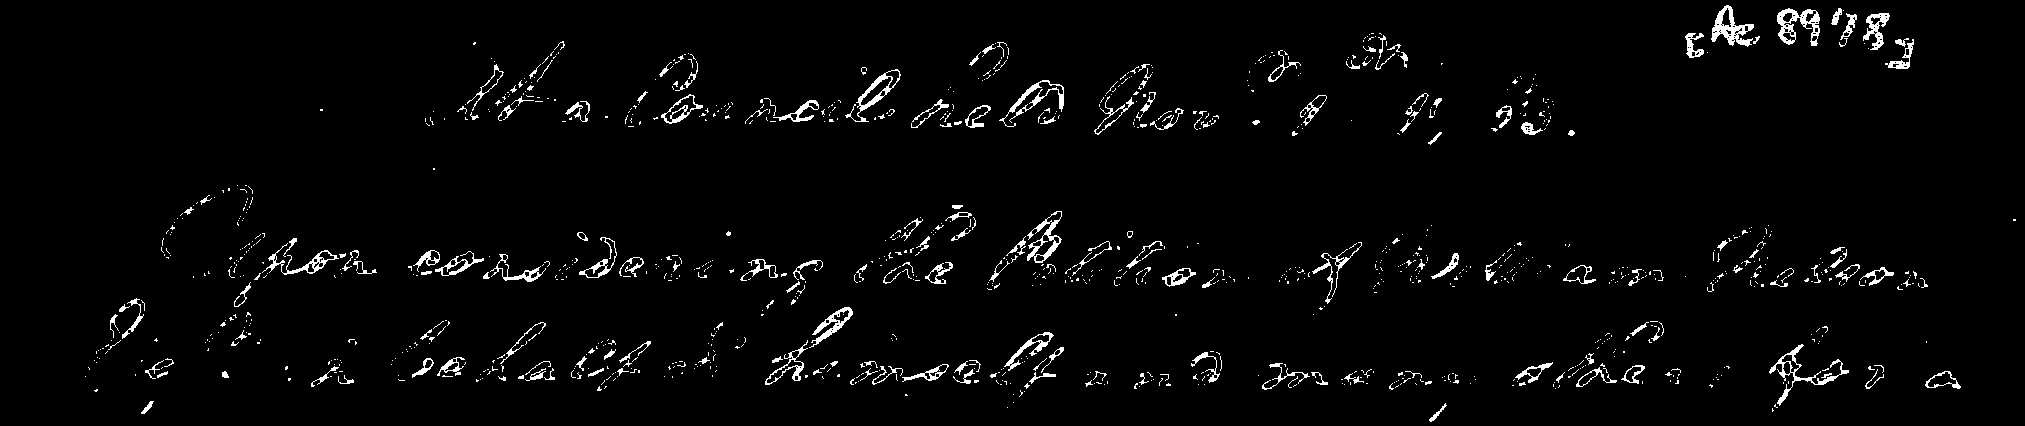 [Ac 8978]
At a Council held Nov.
Upon considering the Petition of William Nelson
in behalf of himself and many others for a